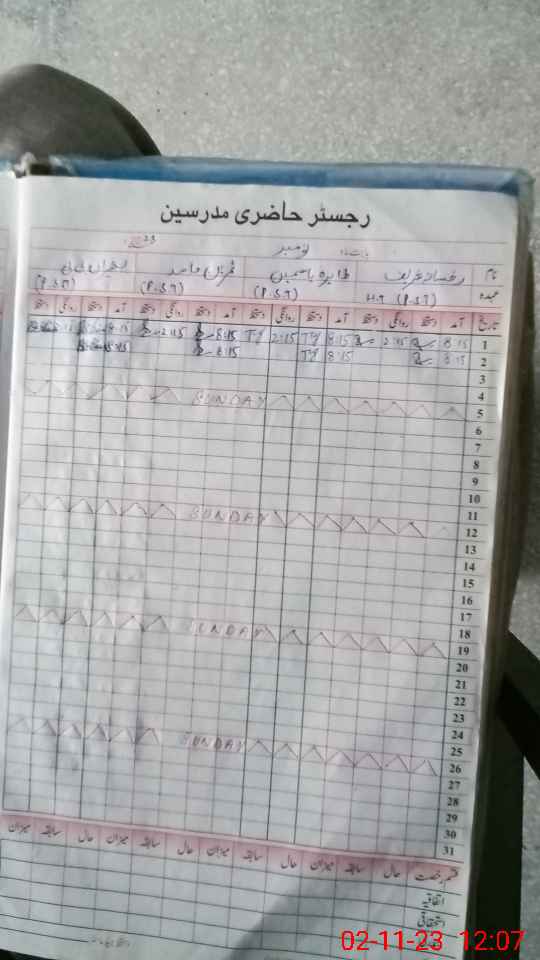 رجسٹر حاضری مدرسین
بابت ماہ نومبر 23
نام رخسانہ عزیف طاہرہ یاسمین
عہدہ H.T (P.S.T) (P.S.T) (P.S.T) (P.S.T)
تاریخ آمد دستخط روانگی دستخط آمد دستخط روانگی دستخط آمد دستخط روانگی دستخط آمد دستخط روانگی دستخط
1 8:15 2:15 8:15 TY 2:15 TY 8:15 2:15 8:15
2 8:15 8:15 TY 8:15 8:15
3
4
5 SUNDAY
6
7
8
9
10
11
12 SUNDAY
13
14
15
16
17
18
19 SUNDAY
20
21
22
23
24
25
26 SUNDAY
27
28
29
30
31
قسم رخصت حال سابقہ میزان حال سابقہ میزان حال سابقہ میزان حال سابقہ میزان
اتفاقیہ
استحقاقی
02-11-23 12:07